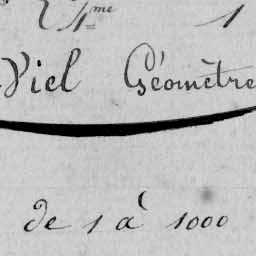 4me 1
Viel Géomètre
de 1 à 1000